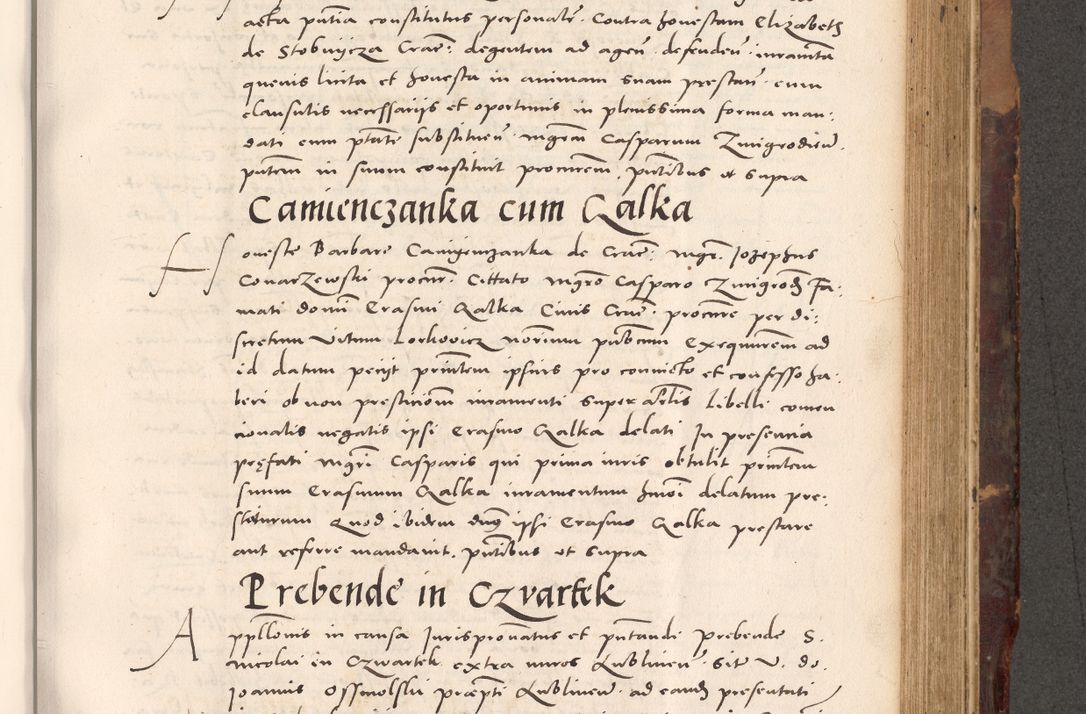 acta pntia constitutus personalr. Contra honestam Elizabeth
de Stobnycza Crac: degentem ad agen. defenden. iuramta
quevis licita et honesta in animam suam prestan. cum
clausulis necessarijs et oportunis in plenissima forma man:
dati cum ptate substituen. mgrm Casparum Zmigrodien.
pntem in suum constituit procurem. pntibus ut supra
Camienczanka cum Qalka
Honeste Barbare Camigenczanka de Crac: mgr. Jozephus
Conarzewski procur. Cittato mgro Casparo Zmigrod Fa:
mati domi Erasmi Qalka Civis Crac. procure per di:
scretum Vitum Lorkovicz norium pubcum Exequurem ad
id datum petijt printem ipsius pro convicto et confesso ha:
beri ob non presticionem iuramenti super artlis libelli conven
cionalis negatis ipsi Erasmo Qalka delati In presencia
pręfati mgri Casparis qui prima iuris obtulit printem
suum Erasmum Qalka iuramentum hmoi delatum pre:
stiturum Quod ibidem dns ipsi Erasmo Qalka prestare
aut referre mandavit. pntibus ut supra
Prebende in Czvartek
Appllonis in causa Jurispronatus et pntandi prebende S.
Nicolai in Czwartek extra muros Lublinen. sit V. do.
Joannis Ossmolskii præpti Lublinen. ad eand presentati